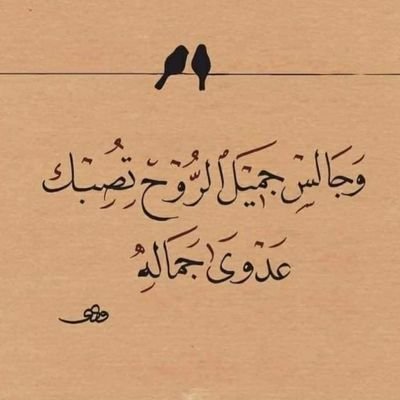 وَجَالِسْ جَمِيْلَ ٱلرُّوْحْ تُصِبْكَ
عَدْوَىٰ جَمَالِهُ